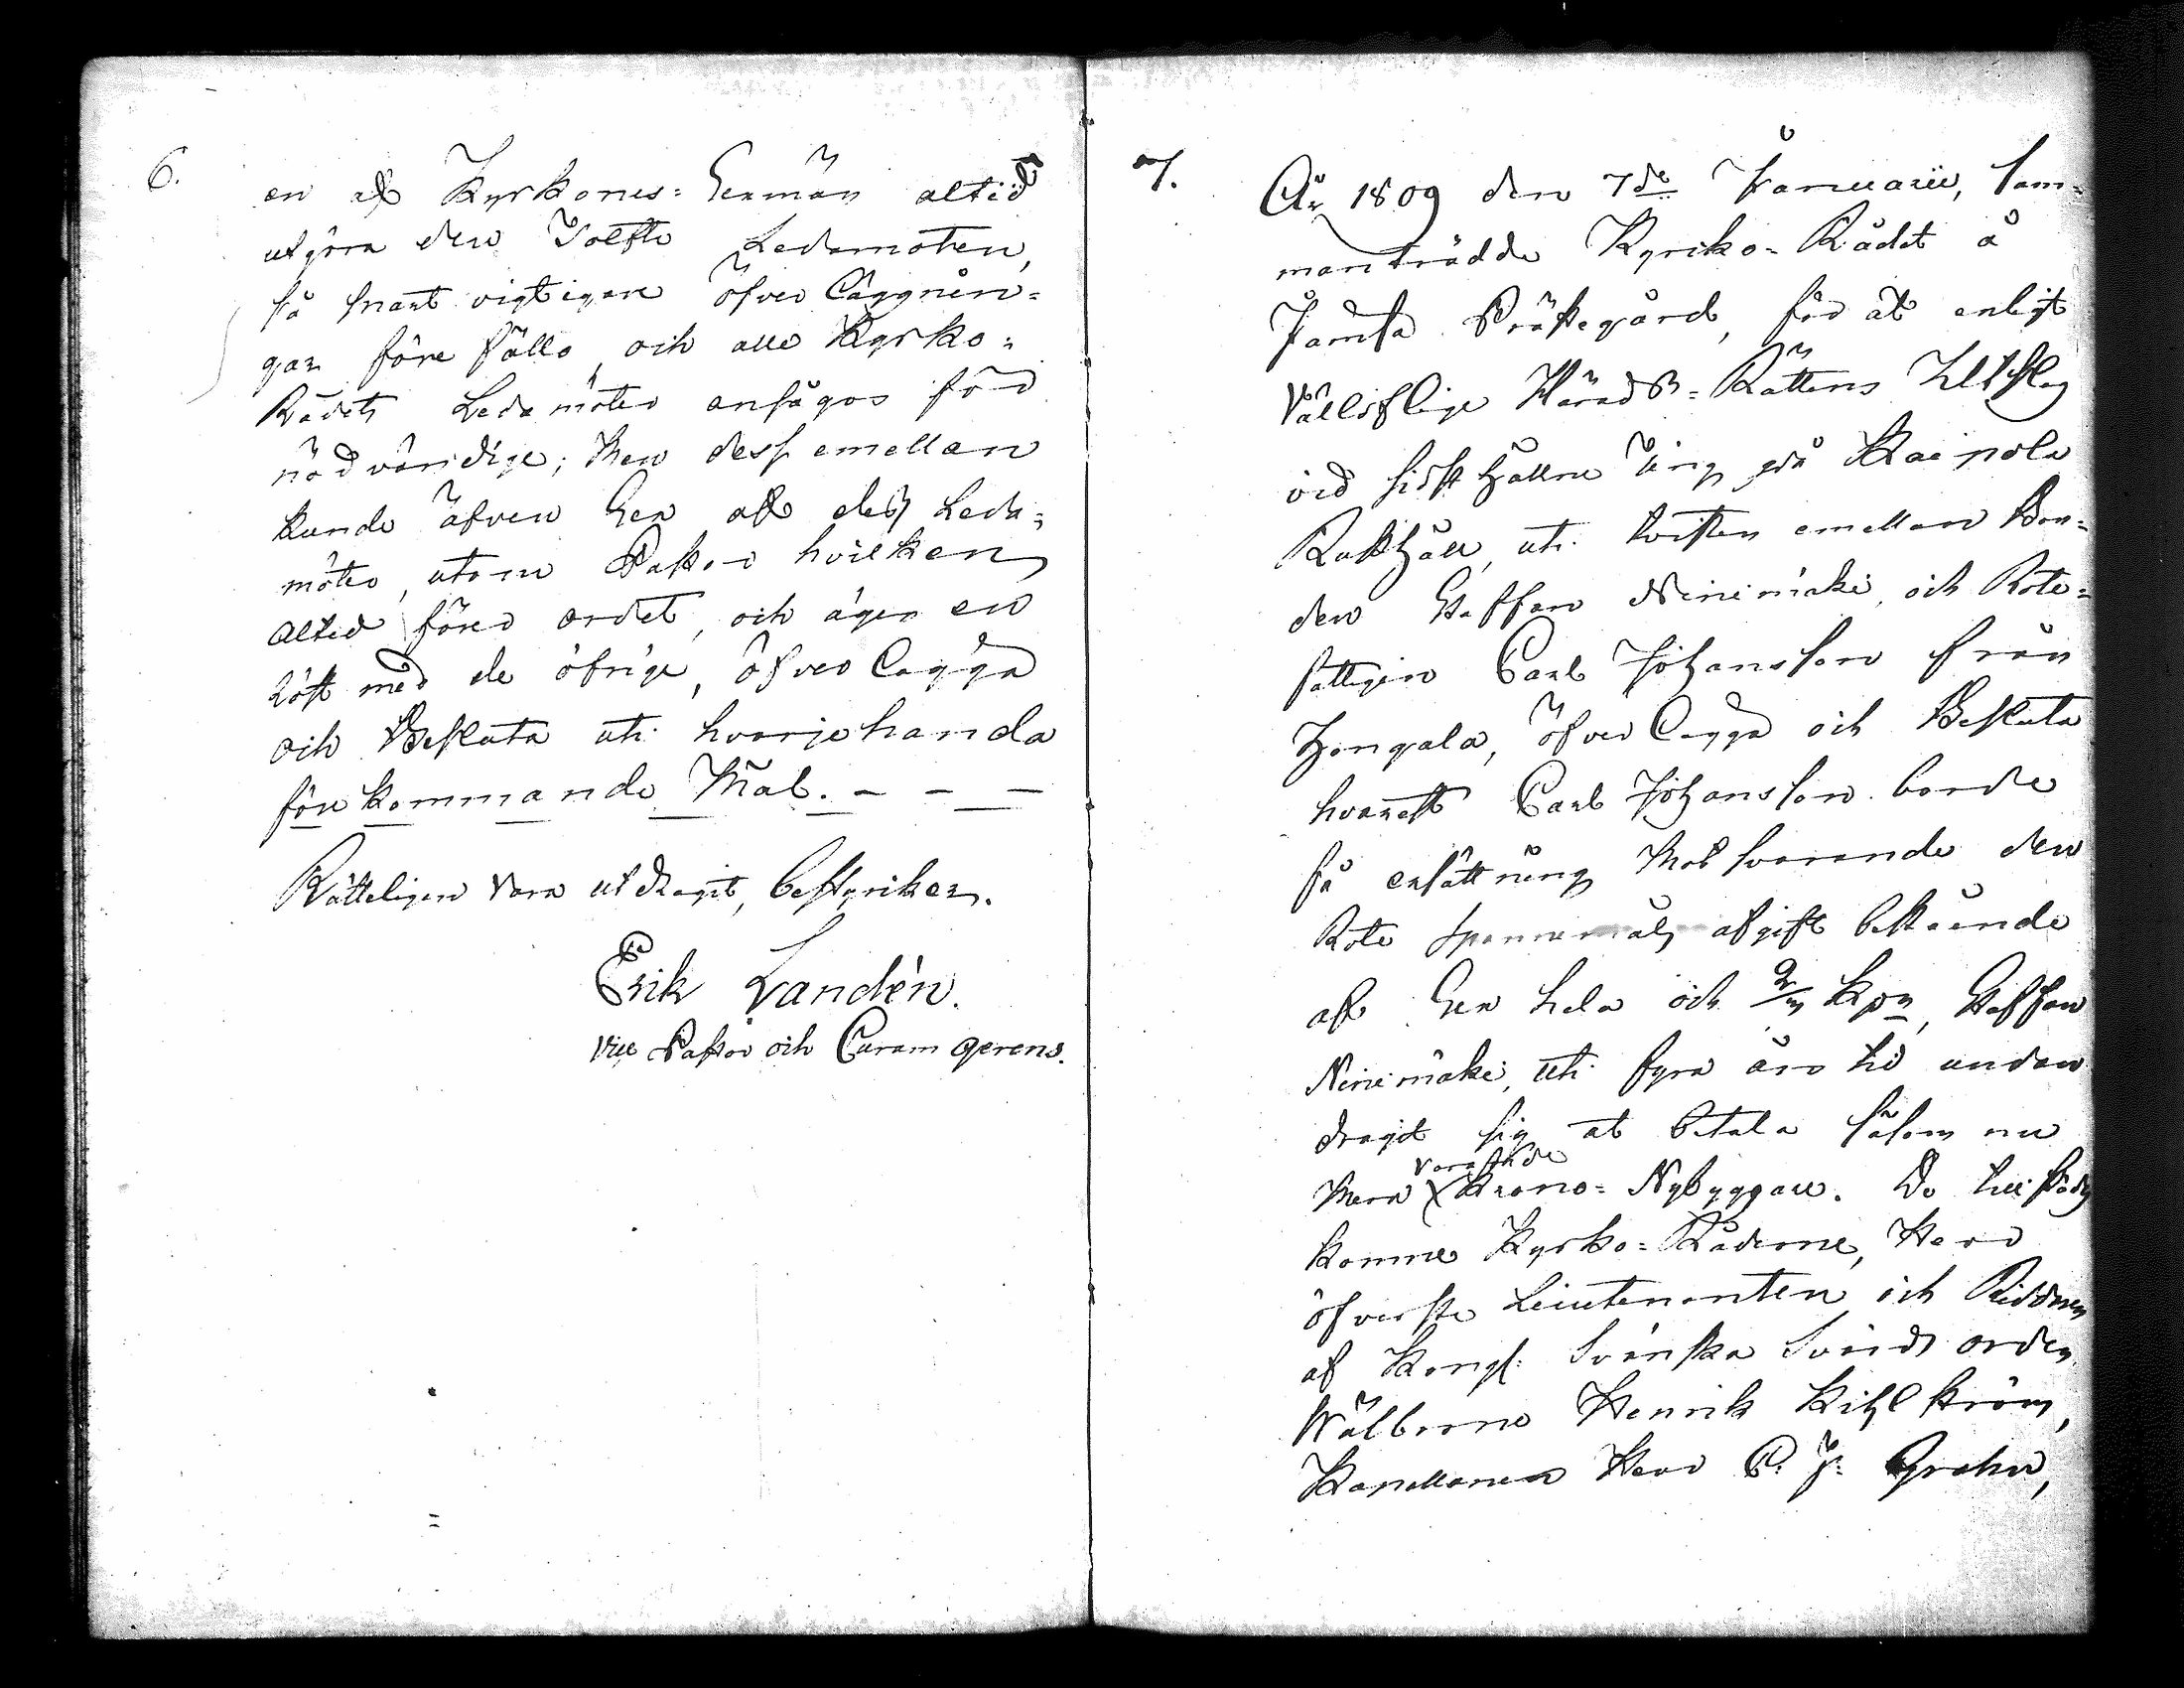 6.
en af Kyrkones=Sexmän altid
utgöra den Tolfte Ledamoten,
så snart vigtigare Öfver läggnin=
gar före fölle, och alle Kyrko=
Rådets Ledamöter ansågos för
nödvändige; Men dess emellan
kunde äfven Sex af dess Leda=
möter, utom Pastor hvilken
altid förer ordet, och äger en
röst med de öfrige, öfver lägga
och Besluta uti hvarjehanda
före kommande Mål. - - -
Rätteligen vara utdragit, bestyrker.
Erik Landén.
vice Pastor och Curam gerens.
7.
År 1809 den 7de Januarii, sam=
manträdde Kyrko=Rådet å
Jämsä Prästegård, för at enligt
Vällofliga Härads=Rättens Utslag
vid sidst hållne Ting på Kaipola
Rusthåll, uti tvisten emellan Bon=
den Staffan Niinimäki, och Rote=
fattigen Carl Johansson från
Hongala, öfver lägga och Besluta
hvarest Carl Johansson borde
få ersättning motsvarande den
Rote spannemåls afgift bestående
af Sex hela och kpr, Staffan
Niinimäki, uti fyra års tid undan
dragit sig at betala såsom nu
mera varande Krono=Nybyggare. Do tillstädes
komne Kyrko=Råderne, Herr
öfverste Lieutenanten och Riddaren
af Kongl: Svenska Svärds orden,
Wälborne Henrik Kihlström,
Kapellanen Herr C. J: Grahn,